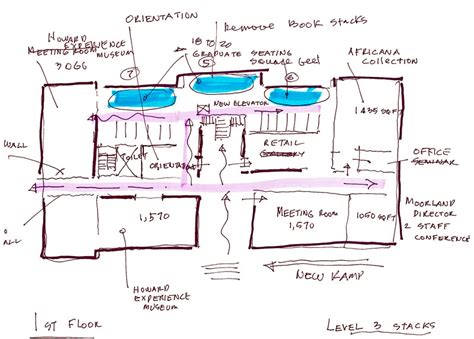 ORIENTATION
Remove Book Stacks
Howard
EXPERIENCE
MEETING ROOM
MUSEUM
3066
18 TO 20
GRADUATE SEATING
AFRICANA
COLLECTION
7
5
6
NEW ELEVATOR
1435 SQFT
WALL
TOILET
ORIENT
RETAIL
GALLERY
OFFICE
SEMINAR
ALL
1,570
MEETING ROOM
1,570
1050 SQFT
MOORLAND
DIRECTOR
2 STAFF
CONFERENCE
HOWARD
EXPERIENCE
MUSEUM
NEW RAMP
1ST FLOOR
LEVEL 3 STACKS